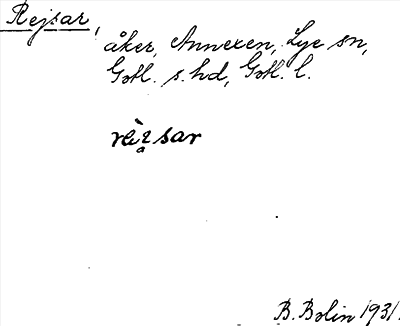 Rejsar,
åker, Annexen, Lye sn,
Gotl. s. hd, Gotl. l.
B. Bolin 1931.